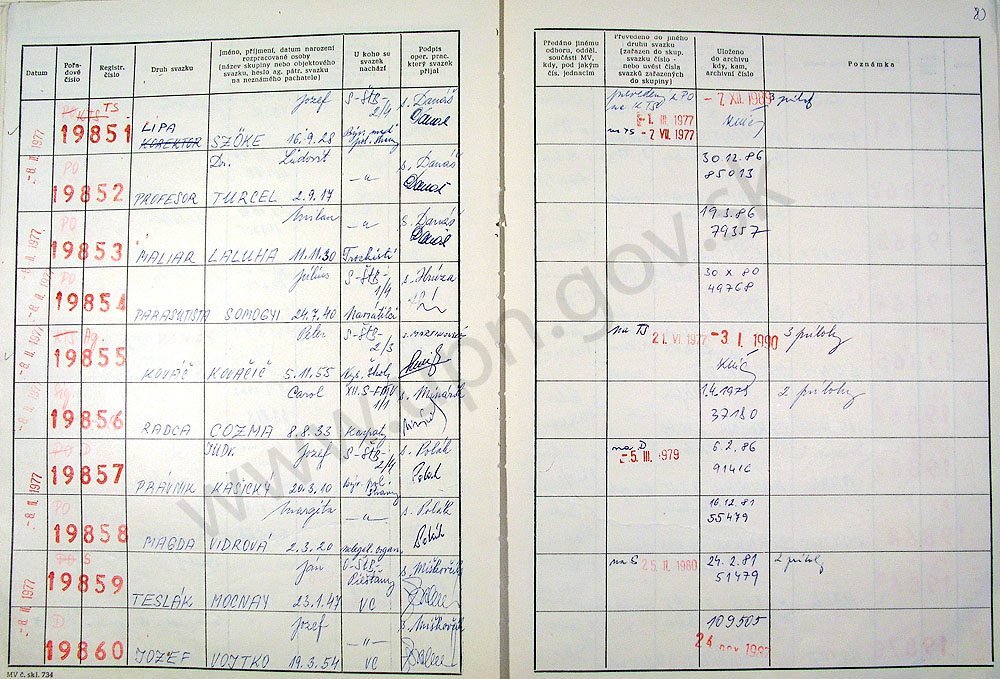 Datum
Pořadové číslo
Registr. číslo
Druh svazku
Jméno, příjmení, datum narození rozpracované osoby (název skupiny nebo objektového svazku, heslo ag. pátr. svazku na neznámého pachatele)
U koho se svazek nachází
Podpis oper. prac. který svazek přijal
Předáno jinému odboru, odděl. součásti MV, kdy, pod jakým čís. jednacím
Převedeno do jiného druhu svazku (zařazen do skup. svazku číslo - nebo uvést čísla svazků zařazených do skupiny)
Uloženo do archivu kdy, kam, archivní číslo
Poznámka
-8. II. 1977 KTS TS 19851 LIPA KOREKTOR Jozef SZÖKE 16.9.28 S-ŠtB 2/4 s. Danáš
na KTS -1. III. 1977 na TS -7. VII. 1977 -7. XII. 1989 3 príloh
PO 19852 PROFESOR Dr. Ľudovít TURCEL 2.9.17 -"- s. Danáš
30.12.86 85013
-8. II. 1977 PO 19853 MALIAR Milan LALUHA 11.11.30 -"- Trockisti s. Danáš
19.3.86 79357
-8. II. 1977 PO 19854 PARAŠUTISTA Július SOMOGYI 24.7.40 S-ŠtB 1/4 Navrátilci
30 X 80 49768
-8. II. 1977 KTS Ag. 19855 KOVÁČ Peter KOVAČIČ 5.11.55 S-ŠtB 2/3 Vys. školy
na TS 21. VI. 1977 -3. I. 1990 3 prílohy
Ag. 19856 RADCA Carol COZMA 8.8.33 XII. S-FMV 1/1 Karpaty s. Mlynárik
1.4.1975 37180 2 prílohy
-8. II. 1977 PO D 19857 PRÁVNIK JUDr. Jozef KAŠICKÝ 20.3.10 S-ŠtB 2/4 s. Polák
na D -5. III. 1979 6.2.86 91416
-8. II. 1977 PO 19858 MAGDA Margita VIDROVÁ 2.3.20 -"- s. Polák
16.12.81 55479
PO S 19859 TESLÁK Ján MOCNAY 23.1.47 O-ŠtB- Piešťany VC s. Miškovčík
na S 25. II. 1980 24.2.81 51479 2 prílohy
-8. II. 1977 D 19860 JOZEF Jozef VOJTKO 19.3.54 -"- VC s. Miškovčík
109505
MV č. skl. 734
www.upn.gov.sk